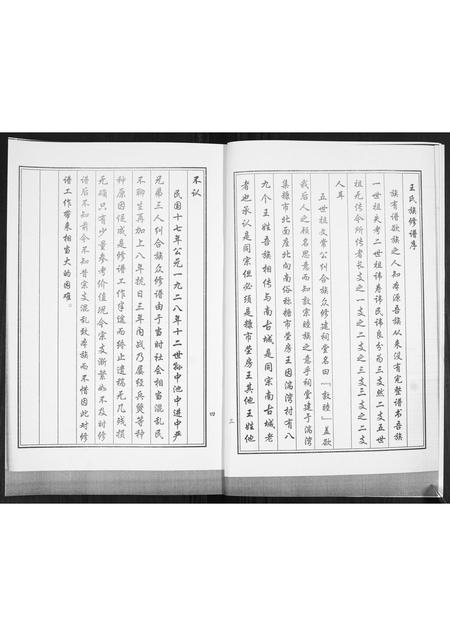 王氏族修谱序
族有谱欲族之人知本源吾族从来没有完整谱书吾族
一世祖失考二世祖讳寿讳民讳良分为三支然二支五世
祖无传今所传者长支之一支二支之三支三支之二支
人耳
五世祖文常公纠合族众修建祠堂名曰「敦睦」盖欲
我后人之顾名思意而知敦宗睦族之意乎祠堂建于湍湾
集糠市北面座北向南俗称糠市茔房王因湍湾村有八
九个王姓吾族相传与南古城是同宗南古城老
者也承认是同宗但必须是糠市茔房王其他王姓他
三
不认
民国十七年公元一九二八年十二世孙中池中进中严
兄弟三人纠合族众修谱由于当时社会相当混乱民
不聊生再加上八年抗日三年内战乃屡经兵燹等种
种原因促成是修谱工作半途而终止遗稿无几残损
无确只有少量参考价值现今宗支渐繁如不及时修
谱后不知前今不知昔宗支混乱致本族而不惜因此对修
谱工作带来相当大的困难。
四